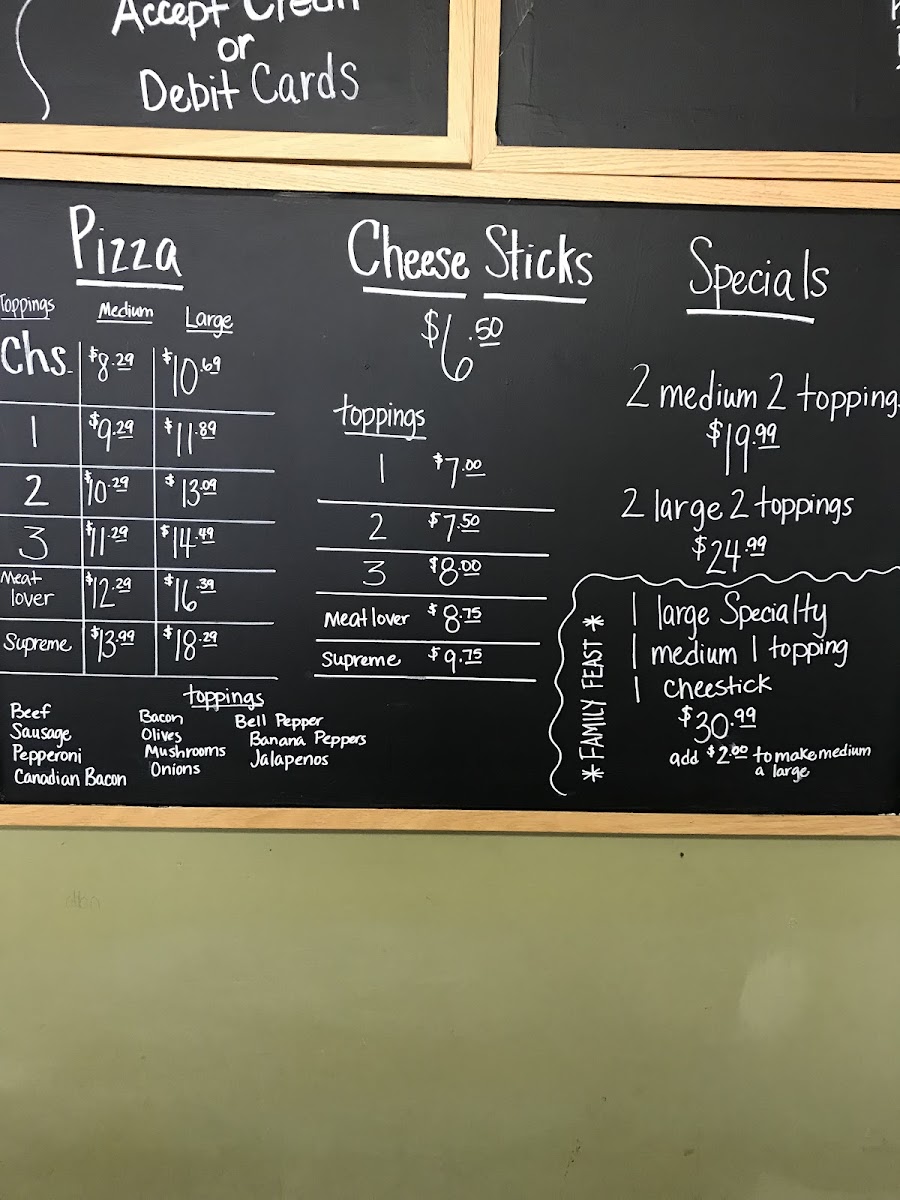 Accept Credit
or
Debit Cards
Pizza
Toppings Medium Large
Chs. $8.29 $10.69
1 $9.29 $11.89
2 $10.29 $13.09
3 $11.29 $14.49
Meat lover $12.29 $16.39
Supreme $13.99 $18.29
toppings
Beef Bacon Bell Pepper
Sausage Olives Banana Peppers
Pepperoni Mushrooms Jalapenos
Canadian Bacon Onions
Cheese Sticks
$6.50
toppings
1 $7.00
2 $7.50
3 $8.00
Meat lover $8.75
Supreme $9.75
Specials
2 medium 2 topping
$19.99
2 large 2 toppings
$24.99
*FAMILY FEAST*
1 large Specialty
1 medium 1 topping
1 cheestick
$30.99
add $2.00 to make medium
a large